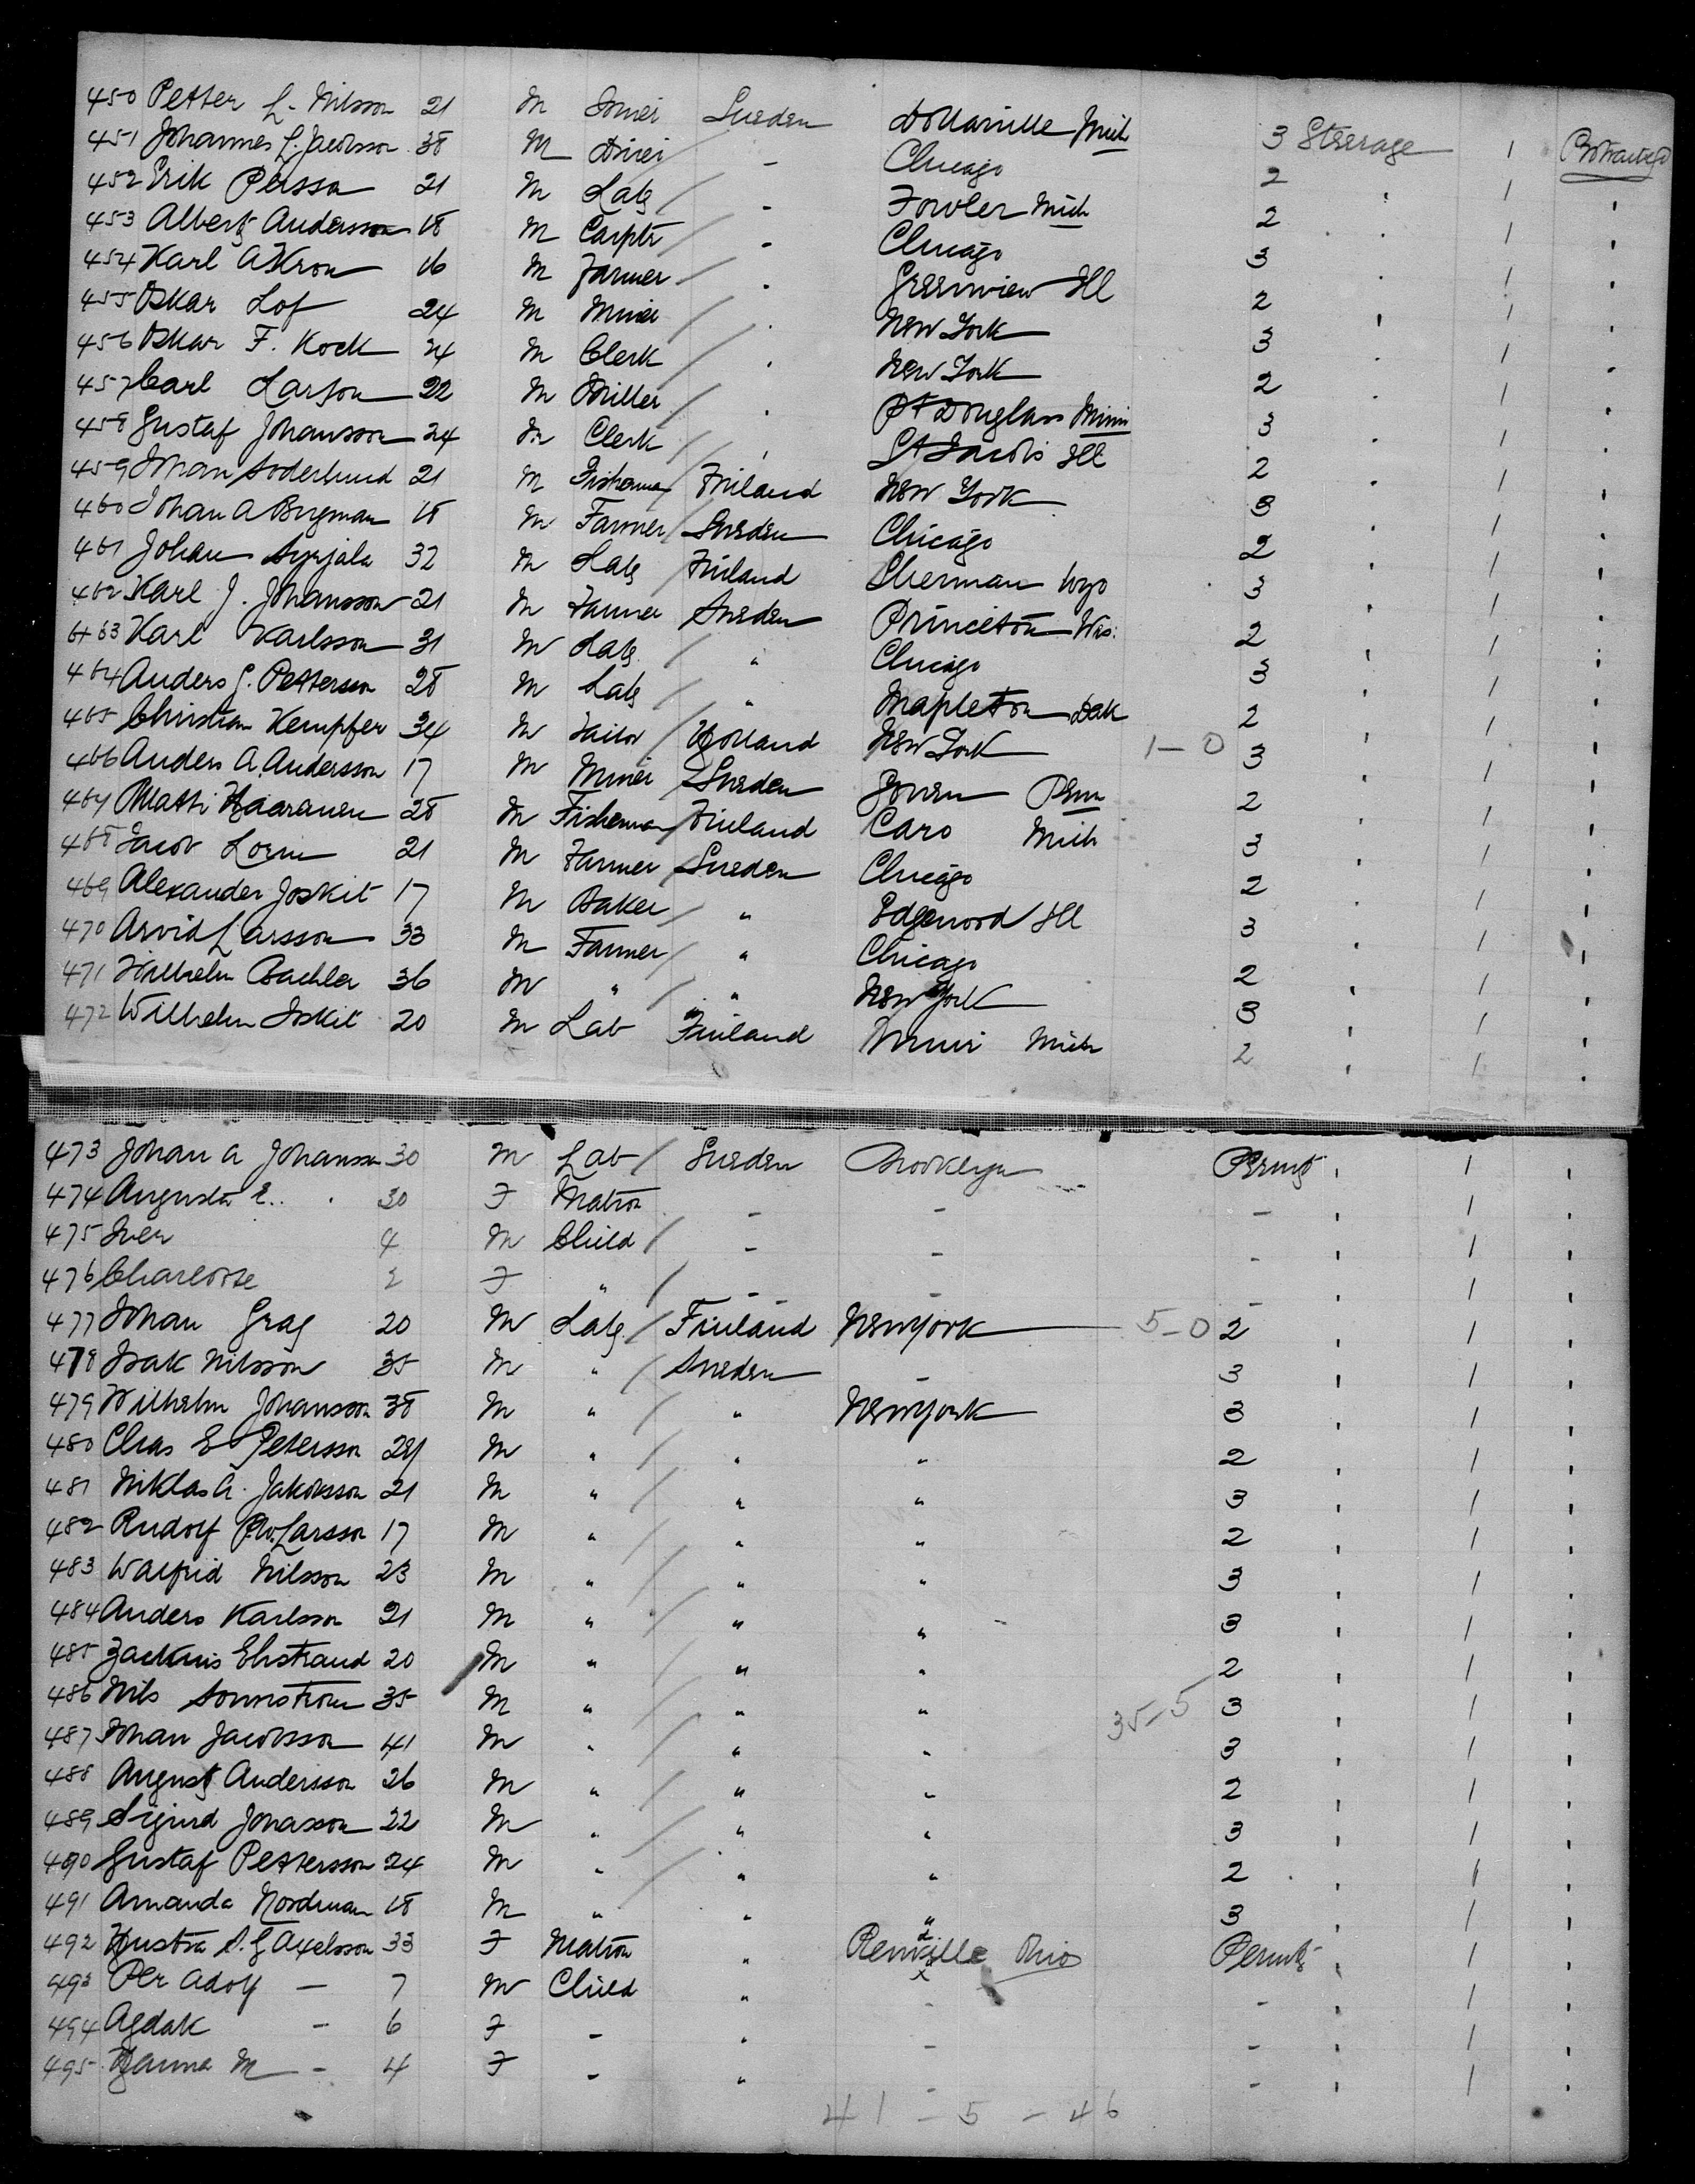 450 Petter L. Nilsson 21 M Sweden Dollarville Mich 3 Steerage 1 Protracted
451 Johannes L. Jacobsson 38 M - Chicago 2 " 1 "
452 Erik Persson 21 M Lab / - Fowler Mich 2 " 1 "
453 Albert Andersson 18 M Carptr / - Chicago 3 " 1 "
454 Karl A Kron 16 M Farmer / " Greenview Ill 2 " 1 "
455 Oskar Lof 24 M Miner / " New York 3 " 1 "
456 Oskar F. Kock 24 M Clerk / " New York 2 " 1 "
457 Carl Larson 22 M Miller / " Pt Douglass Minn 3 " 1 "
458 Gustaf Johansson 24 M Clerk / " St Jacobs Ill 2 " 1 "
459 Johan Soderlund 21 M Fisherman / Finland New York 3 " 1 "
460 Johan A Bergman 18 M Farmer / Sweden Chicago 2 " 1 "
461 Johan Syrjala 32 M Lab / Finland Sherman Wyo 3 " 1 "
462 Karl J. Johansson 21 M Farmer Sweden Princeton Wis. 2 " 1 "
463 Karl Karlsson 31 M Lab / " Chicago 3 " 1 "
464 Anders G. Petterson 28 M Lab / " Mapleton Dak 2 " 1 "
465 Christian Kempfer 34 M Tailor / Holland New York 1-0 3 " 1 "
466 Anders A. Andersson 17 M Miner / Sweden Penn 2 " 1 "
467 Matti Haaranen 28 M Fisherman / Finland Caro Mich 3 " 1 "
468 Jacob 21 M Farmer / Sweden Chicago 2 " 1 "
469 Alexander Joskit 17 M Baker / " Edgewood Ill 3 " 1 "
470 Arvid Larsson 33 M Farmer / " Chicago 2 " 1 "
471 Wilhelm Bachler 36 M " / " New York 3 " 1 "
472 Wilhelm 20 M Lab Finland Mich 2 " 1 "
473 Johan A Johansson 30 M Lab / Sweden Brooklyn Permt " 1 "
474 Augusta E. " 30 F Matron - - - " 1 "
475 Iver 4 M Child / - - - " 1 "
476 Charlotte 2 F " / - - - " 1 "
477 Johan Grag 20 M Lab / Finland New York 5-0 2 " 1 "
478 Isak Nilsson 35 M " / Sweden - 3 " 1 "
479 Wilhelm Johansson 38 M " / " New York 3 " 1 "
480 Chas E Petersson 24 M " / " " 2 " 1 "
481 Niklas A. Jakobsson 21 M " / " " 3 " 1 "
482 Rudolf P.W. Larsson 17 M " / " " 2 " 1 "
483 Walfrid Nilsson 23 M " / " " 3 " 1 "
484 Anders Karlsson 21 M " / " " 3 " 1 "
485 Zackris Ehstrand 20 M " / " " 2 " 1 "
486 Nils Sonnstrom 35 M " / " " 35-5 3 " 1 "
487 Johan Jacobsson 41 M " / " " 3 " 1 "
488 August Andersson 26 M " / " " 2 " 1 "
489 Sigurd Jonasson 22 M " / " " 3 " 1 "
490 Gustaf Pettersson 24 M " / " " 2 " 1 "
491 Amanda Nordman 18 M " " " 3 " 1 "
492 Hustru S. G Axelsson 33 F Matron " Renville Ohio Permt " 1 "
493 Per Adolf - 7 M Child " - - " 1 "
494 Agdak - 6 F - " - - " 1 "
495 Hanna M - 4 F - " - - " 1 "
41 - 5 - 46